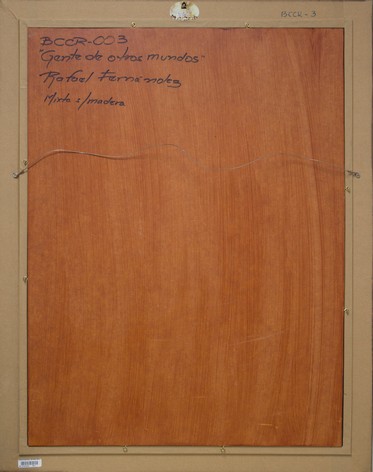 BCCR-3
BCCR-003
"Gente de otros mundos"
Rafael Fernández
Mixta s/madera